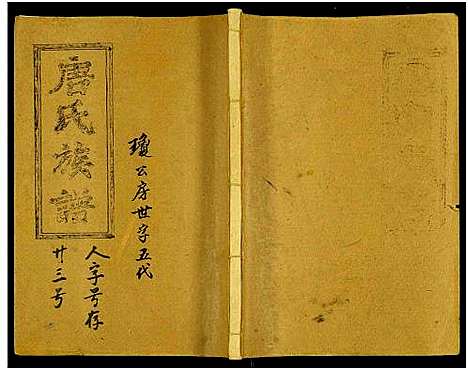 唐氏族譜
瓊公房世字五代
人字号存
廿三号